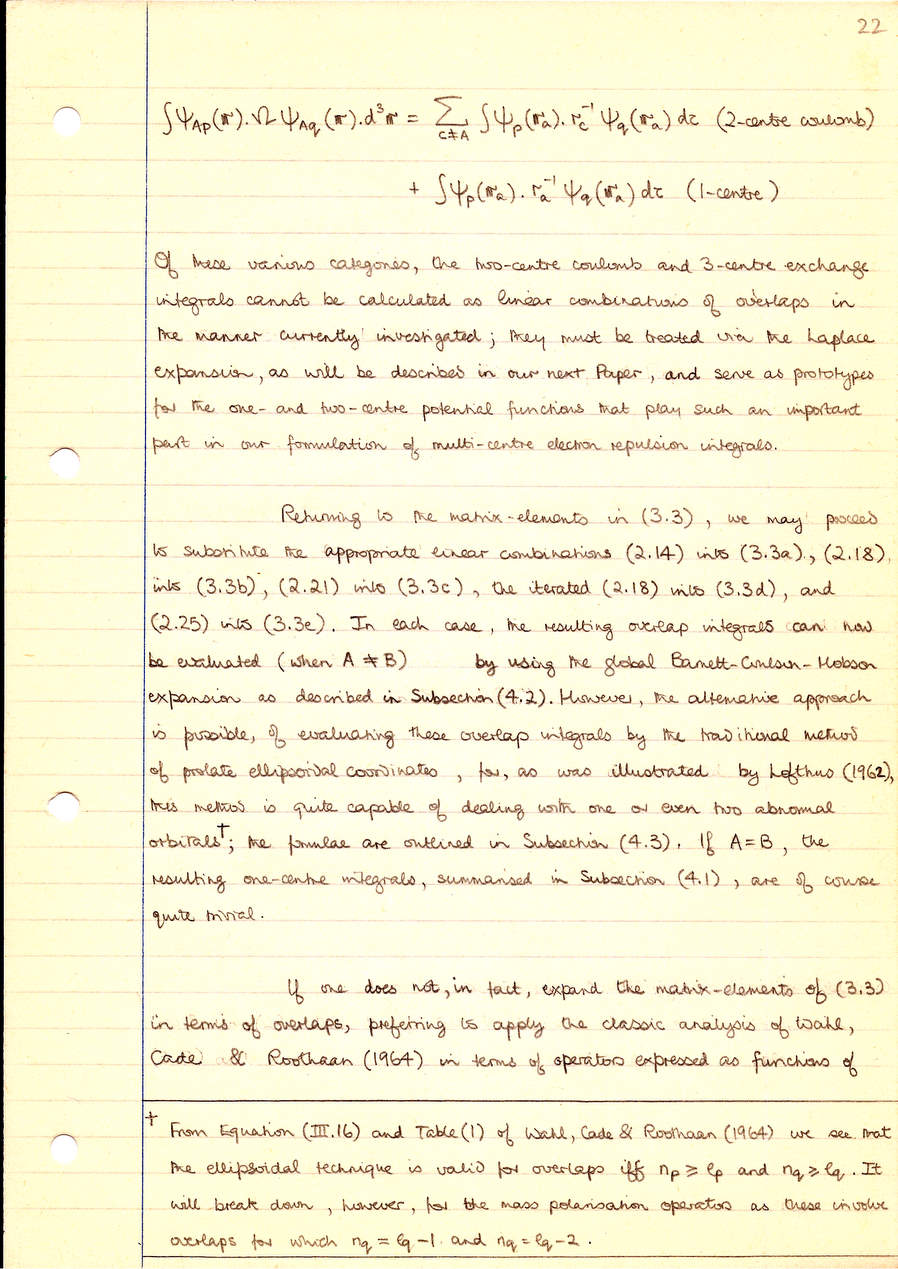 22
∫ψ_Ap(𝐫).Ω ψ_Aq(𝐫).d³𝐫 = Σ_{C≠A} ∫ψ_p(𝐫_a). r_c⁻¹ ψ_q(𝐫_a) dτ (2-centre coulomb)
+ ∫ψ_p(𝐫_a). r_a⁻¹ ψ_q(𝐫_a) dτ (1-centre)
Of these various categories, the two-centre coulomb and 3-centre exchange
integrals cannot be calculated as linear combinations of overlaps in
the manner currently investigated; they must be treated via the Laplace
expansion, as will be described in our next Paper, and serve as prototypes
for the one- and two-centre potential functions that play such an important
part in our formulation of multi-centre electron repulsion integrals.
Returning to the matrix-elements in (3.3), we may proceed
to substitute the appropriate linear combinations (2.14) into (3.3a), (2.18)
into (3.3b), (2.21) into (3.3c), the iterated (2.18) into (3.3d), and
(2.25) into (3.3e). In each case, the resulting overlap integrals can now
be evaluated (when A ≠ B) by using the global Barnett-Coulson-Hobson
expansion as described in Subsection (4.2). However, the alternative approach
is possible, of evaluating these overlap integrals by the traditional method
of prolate ellipsoidal coordinates, for, as was illustrated by Lofthus (1962),
this method is quite capable of dealing with one or even two abnormal
orbitals†; the formulae are outlined in Subsection (4.3). If A=B, the
resulting one-centre integrals, summarised in Subsection (4.1), are of course
quite trivial.
If one does not, in fact, expand the matrix-elements of (3.3)
in terms of overlaps, preferring to apply the classic analysis of Wahl,
Cade & Roothaan (1964) in terms of operators expressed as functions of
† From Equation (III.16) and Table (1) of Wahl, Cade & Roothaan (1964) we see that
the ellipsoidal technique is valid for overlaps iff n_p ⩾ l_p and n_q ⩾ l_q. It
will break down, however, for the mass polarisation operators as these involve
overlaps for which n_q = l_q-1 and n_q = l_q-2.